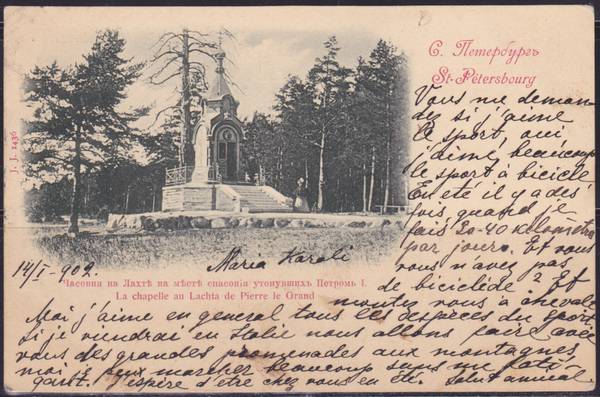 С. Петербургъ
St-Pétersbourg
J. J. 2436
Vous me deman-
dez si j'aime
le sport, oui
j'aime beaucoup
le sport à bicicle
En été il y a des
fois quand je
fais 30-40 kilometres
par jours. Et vous
vous n'avez pas
de biciclide? Et
montez vous à chevale
14/I - 902.
Maria Karoli
Часовня на Лахтѣ на мѣстѣ спасенія утонувшихъ Петромъ I.
La chapelle au Lachta de Pierre le Grand
Moi j'aime en general tous les despeces du sport
Si je viendrai en Italie nous allons faire avec
vous des grandes promenades aux montagnes,
moi je peux marcher beaucoup sans me fati-
gant. J'espère d'être chez vous en été. Salut amical